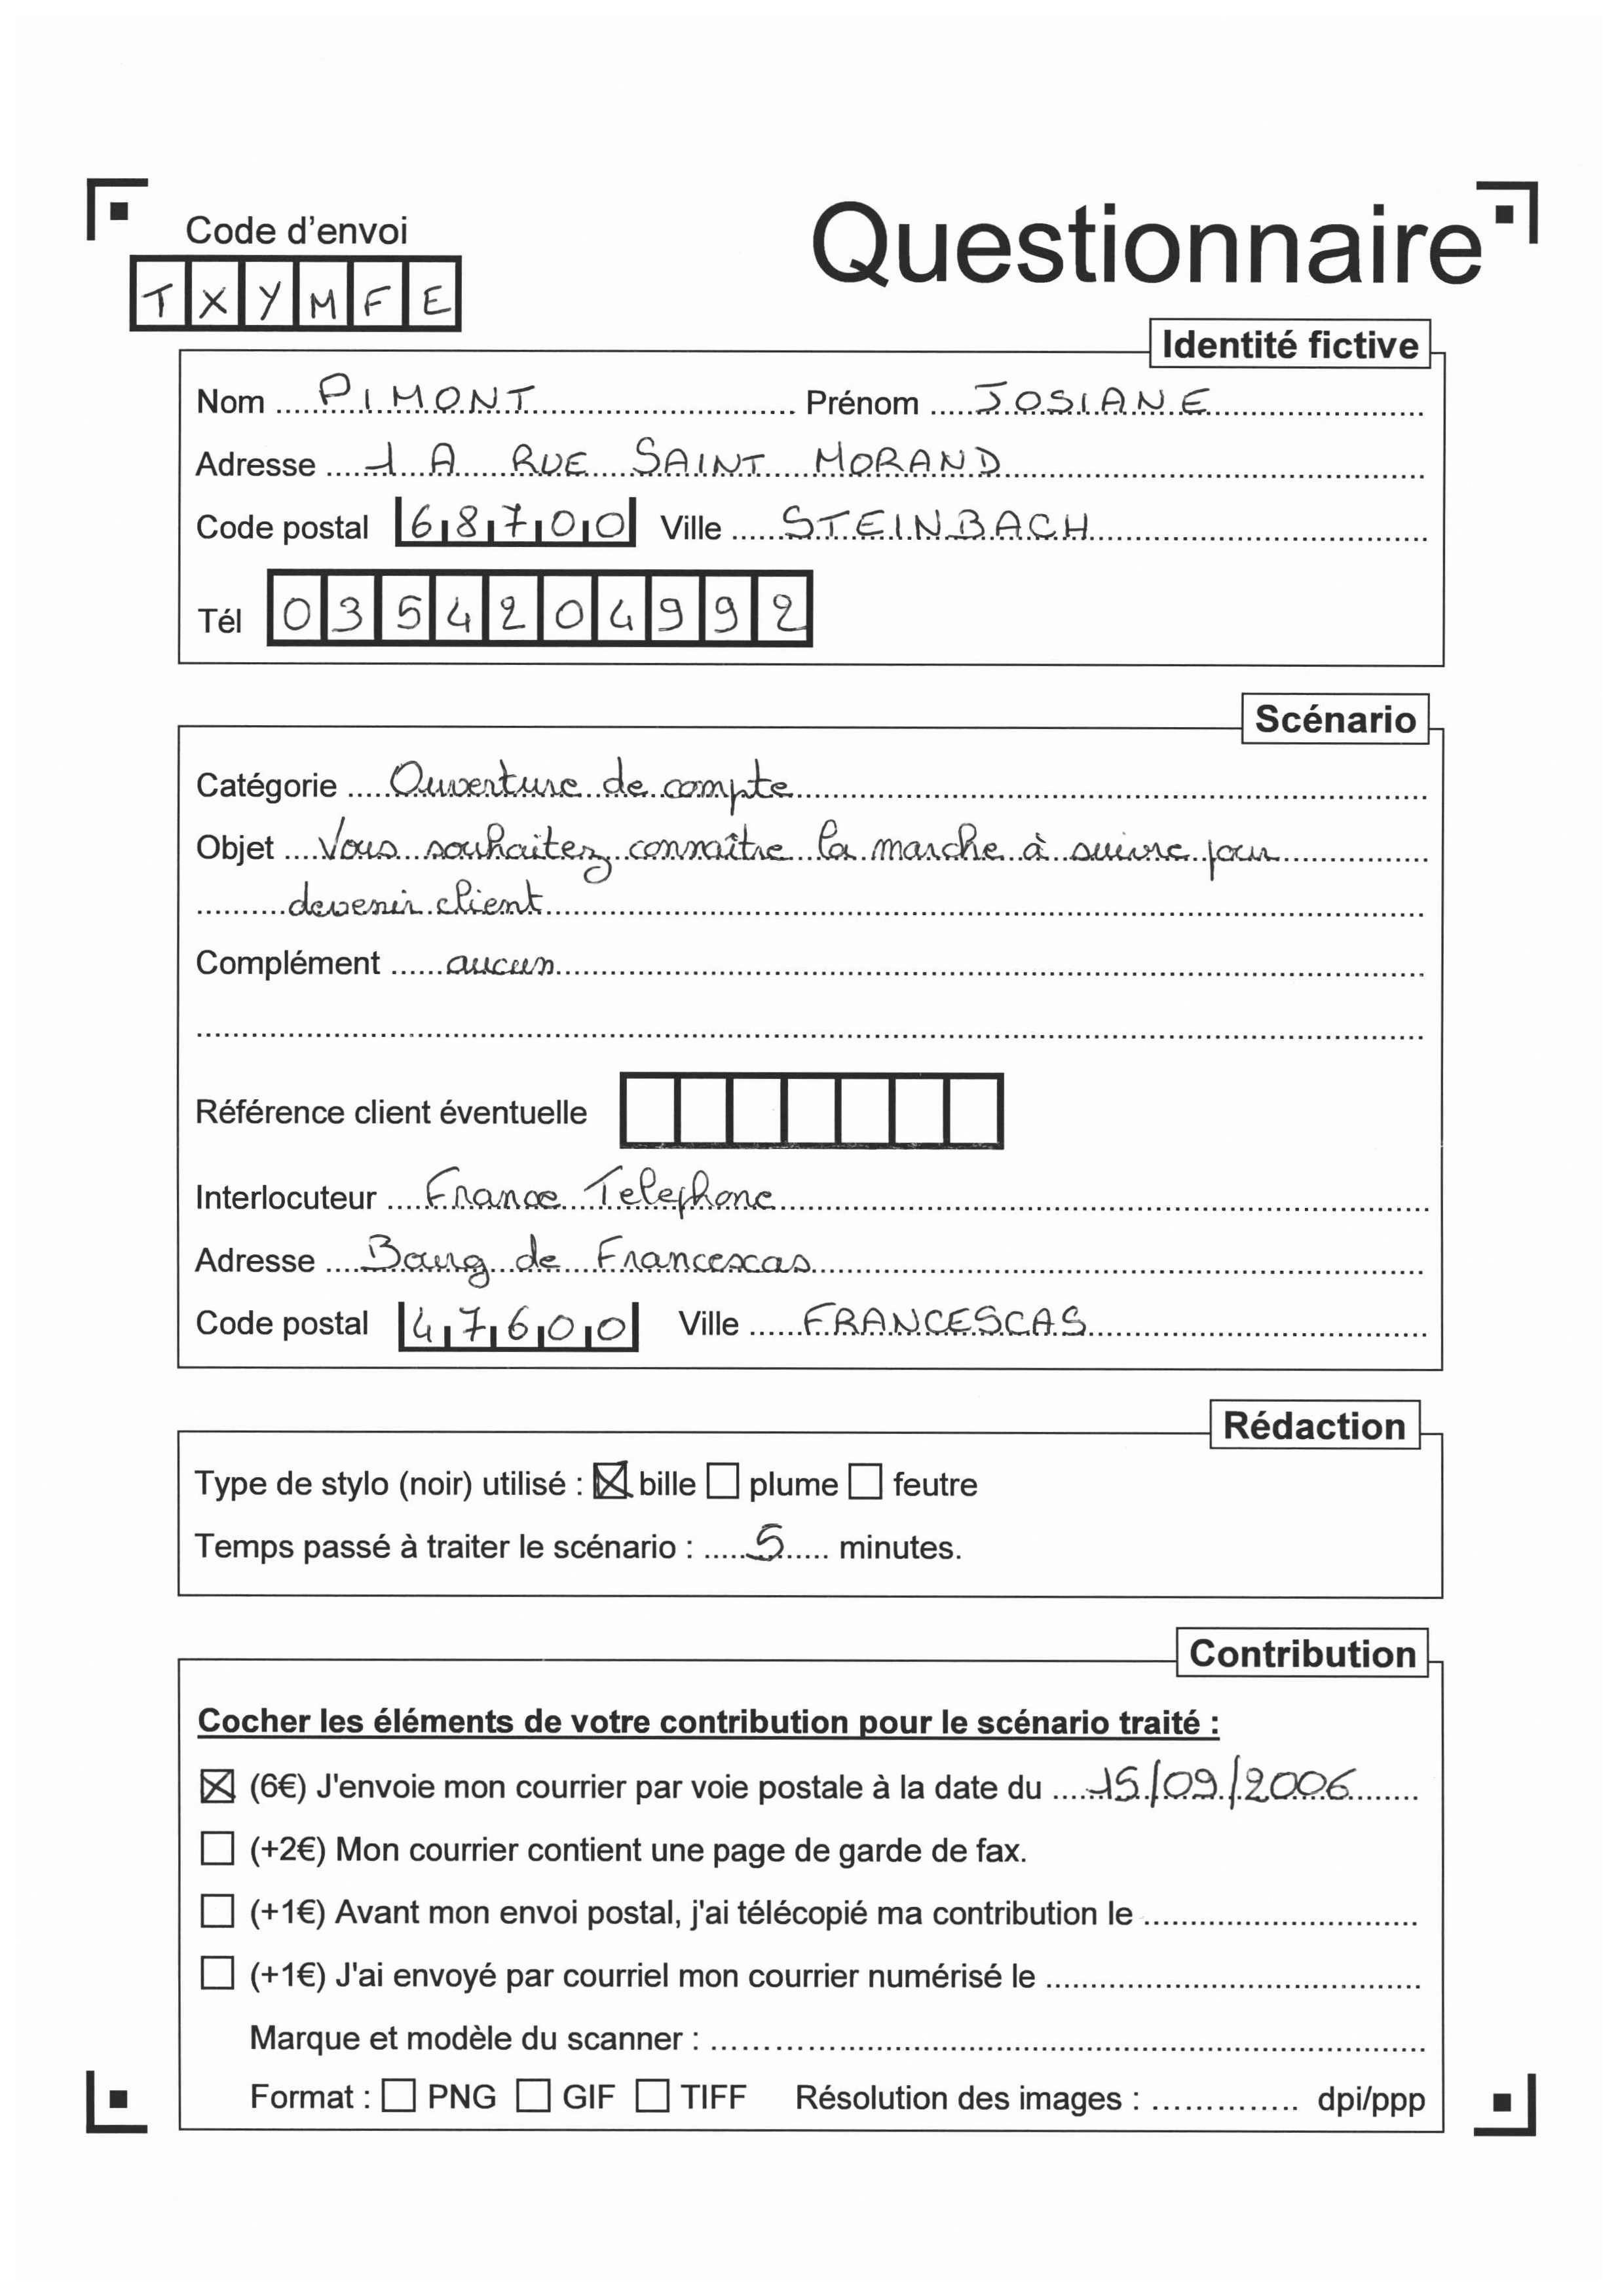 Code d'envoi
Questionnaire
TXYMFE
Identité fictive
Nom PIMONT Prénom JOSIANE
Adresse 1 A RUE SAINT MORAND
Code postal 68700 Ville STEINBACH
Tél 0354204992
Scénario
Catégorie Ouverture de compte
Objet Vous souhaitez connaître la marche à suivre pour
devenir client
Complément aucun
Référence client éventuelle
Interlocuteur France Telephone
Adresse Bourg de Francescas
Code postal 47600 Ville FRANCESCAS
Rédaction
Type de stylo (noir) utilisé : bille plume feutre
Temps passé à traiter le scénario : 5 minutes.
Contribution
Cocher les éléments de votre contribution pour le scénario traité :
(6€) J'envoie mon courrier par voie postale à la date du 15/09/2006
(+2€) Mon courrier contient une page de garde de fax.
(+1€) Avant mon envoi postal, j'ai télécopié ma contribution le
(+1€) J'ai envoyé par courriel mon courrier numérisé le
Marque et modèle du scanner :
Format : PNG GIF TIFF Résolution des images : dpi/ppp